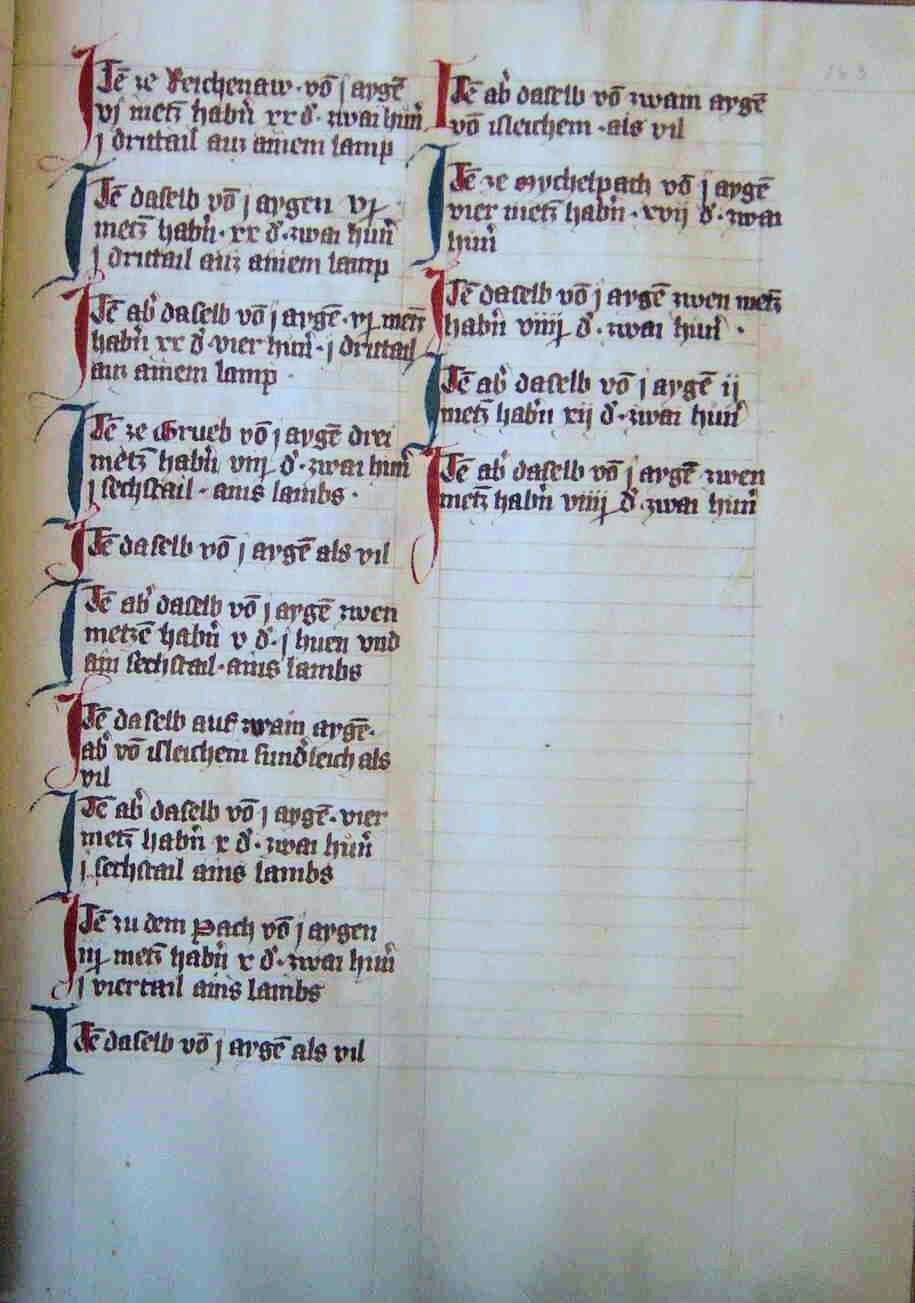 Itē ze Reichenaw · vō j aygē
vj metz̄ habn̄ · xx d̵ · zwai hün̄
j drittail auz ainem lamp
Itē daselb vō j aygen vj
metz̄ habn̄ · xx d̵ · zwai hün̄
j drittail auz ainem lamp
Itē ab̕ daselb vō j aygē · vj metz̄
habn̄ xx d̵ · vier hün̄ · j drittail
auz ainem lamp ·
Itē ze Grueb vō j aygē drei
metz̄ habn̄ viij d̵ · zwai hün̄
j sechstail · ains lambs ·
Itē daselb vō j aygē als vil
Itē ab̕ daselb vō j aygē zwen
metzē habn̄ v d̵ · j huen vnd
ain sechstail · ains lambs
Itē daselb auf zwain aygē ·
ab̕ vō isleichem sund̕leich als
vil
Itē ab̕ daselb vō j aygē · vier
metz̄ habn̄ x d̵ · zwai hün̄
j sechstail ains lambs
Itē zu dem Pach vō j aygen
iij metz̄ habn̄ x d̵ · zwai hün̄
j viertail ains lambs
Itē daselb vō j aygē als vil
Itē ab̕ daselb vō zwain aygē
vō isleichem · als vil
Itē ze Mychelpach vō j aygē
vier metz̄ habn̄ · xvij d̵ · zwai
hün̄
Itē daselb vō j aygē zwen metz̄
habn̄ viiij d̵ · zwai hün̄ ·
Itē ab̕ daselb vō j aygē ij
metz̄ habn̄ xij d̵ · zwai hün̄
Itē ab̕ daselb vō j aygē zwen
metz̄ habn̄ viiij d̵ · zwai hün̄